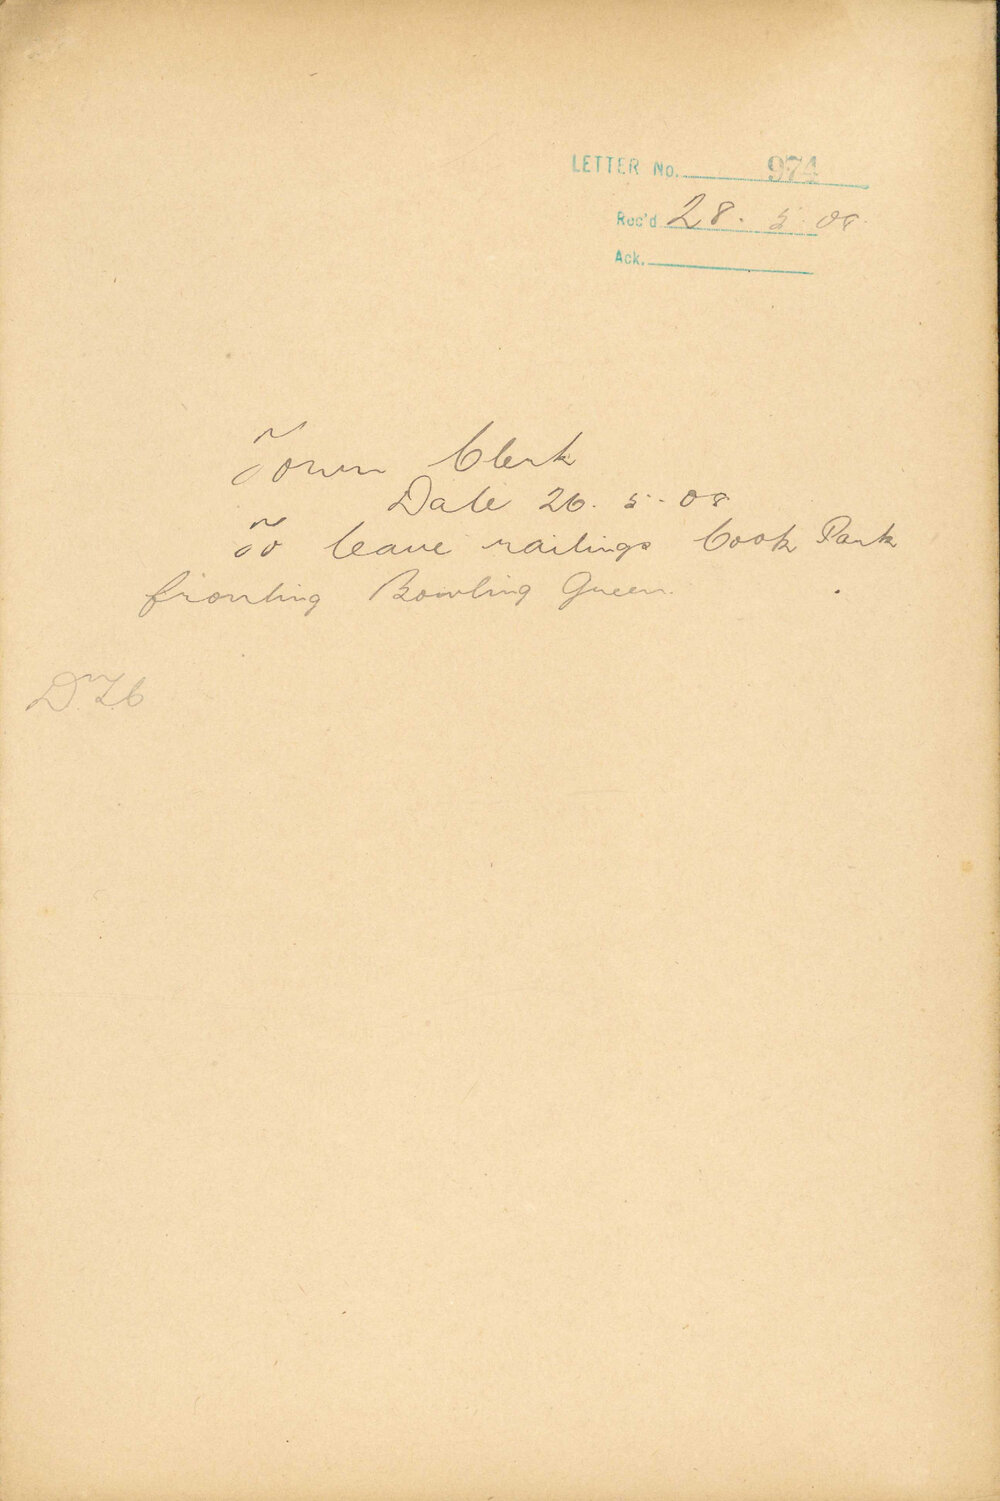 LETTER No. 974
Rec'd 28. 5. 08.
Ack.
Town Clerk
Date 26. 5. 08
To leave railings Cook Park
fronting Bowling Green.